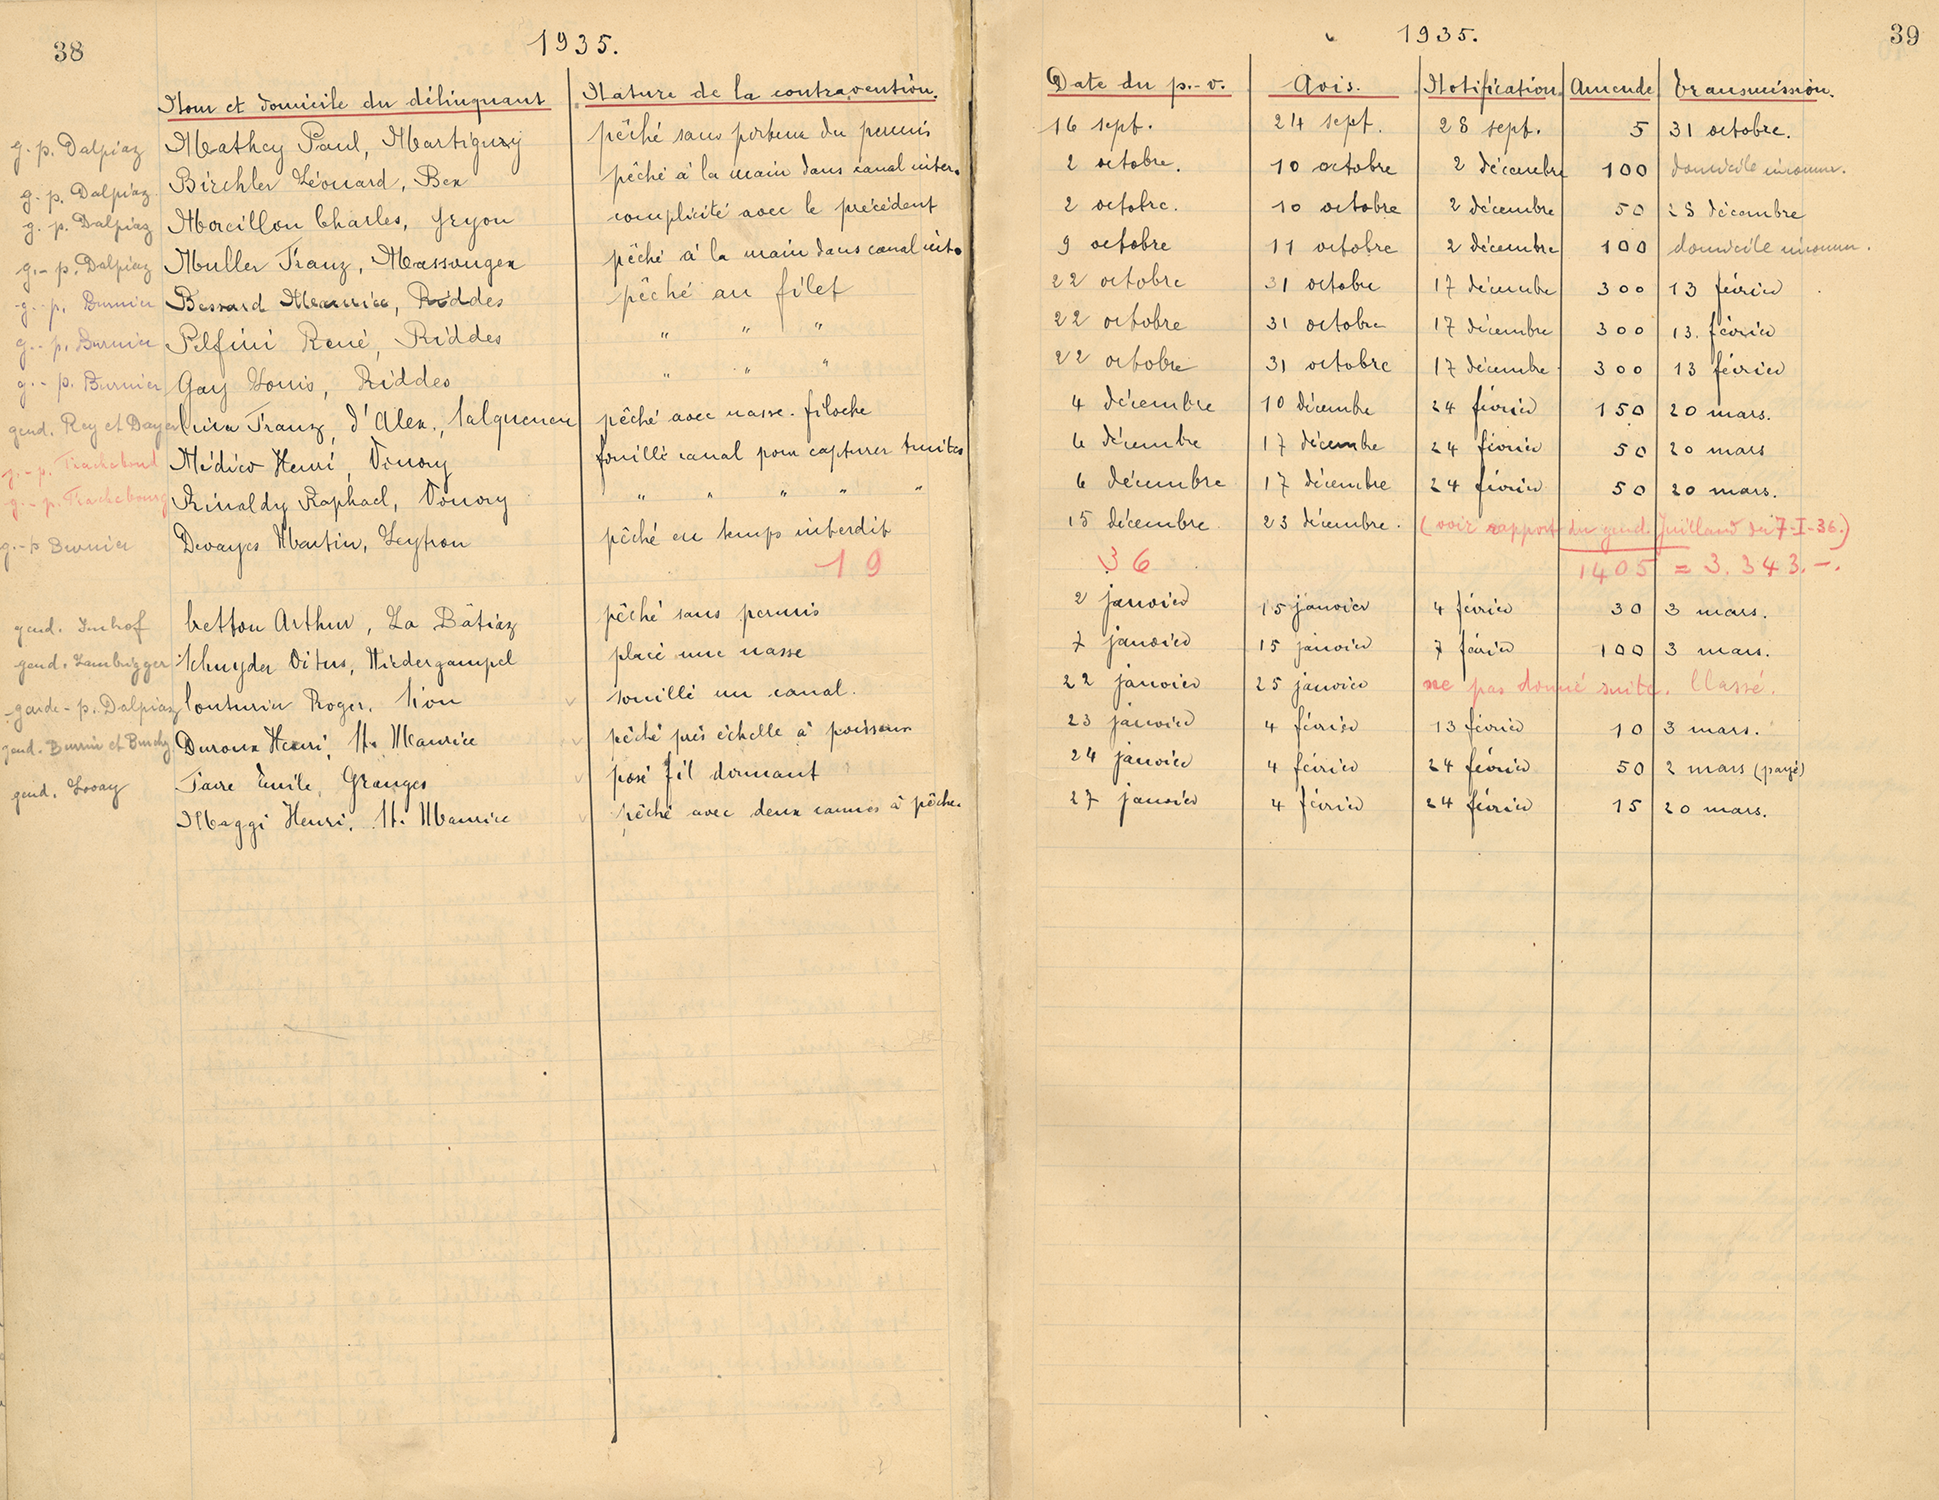 38
1935.
Nom et domicile du délinquant Nature de la contravention.
g. p. Dalpiaz Mathey Paul, Martigny pêché sans porteur du permis
g. p. Dalpiaz Birchler Léonard, Bex pêché à la main dans canal inter.
g. p. Dalpiaz Morcillon Charles, Gryon complicité avec le précédent
g.- p. Dalpiaz Muller Franz, Massongex pêché à la main dans canal int.
g.- p. Burnier Bessard Maurice, Riddes pêché au filet
g.- p. Burnier Pelfini René, Riddes " " "
g.- p. Burnier Gay Louis, Riddes " " "
gend. Rey et Dayer Franz, d'Alex., Salquenen pêché avec nasse - filoche
g.- p. Médico Henri, Vouvry fouillé canal pour capturer truites
g.- p. Rinaldy Raphael, Vouvry " " " " "
g.- p Burnier Devayes Martin, Leytron pêché en temps interdit
19
gend. Imhof Cretton Arthur, La Bâtiaz pêché sans permis
gend. Lambrigger Schnyder Vitus, Niedergampel placé une nasse
garde - p. Dalpiaz Couturier Roger, Sion souillé un canal.
gend. Burrin et Duroux Henri, St. Maurice pêché près échelle à poissons
gend. Lovay Favre Emile, Granges posé fil dormant
Maggi Henri, St. Maurice pêché avec deux cannes à pêche.
39
1935.
Date du p.-v. Avis. Notification. Amende Transmission.
16 sept. 24 sept. 28 sept. 5 31 octobre.
2 octobre. 10 octobre 2 décembre 100 domicile inconnu.
2 octobre. 10 octobre 2 décembre 50 28 décembre
9 octobre 11 octobre 2 décembre 100 domicile inconnu.
22 octobre 31 octobre 17 décembre 300 13 février
22 octobre 31 octobre 17 décembre 300 13. février
22 octobre 31 octobre 17 décembre 300 13 février
4 décembre 10 décembre 24 février 150 20 mars.
6 décembre 17 décembre 24 février 50 20 mars
6 décembre 17 décembre 24 février 50 20 mars.
15 décembre 23 décembre. (voir rapport du gend. Juilland du 7-I-36.)
36 1405 = 3.343.-.
2 janvier 15 janvier 4 février 30 3 mars.
7 janvier 15 janvier 7 février 100 3 mars.
22 janvier 25 janvier ne pas donné suite. Classé.
23 janvier 4 février 13 février 10 3 mars.
24 janvier 4 février 24 février 50 2 mars (payé)
27 janvier 4 février 24 février 15 20 mars.